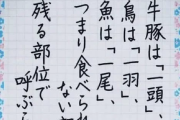 牛豚は「一頭」、
鳥は「一羽」、
魚は「一尾」、
つまり食べられ
ない
残る部位で
呼ぶ